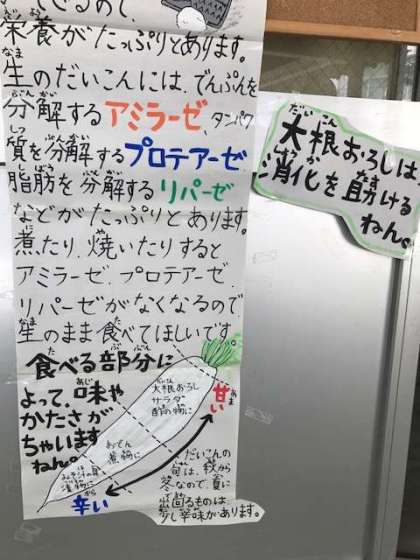 できるので、
栄養がたっぷりとあります。
生のだいこんには、でんぷんを
分解するアミラーゼ、タンパク
質を分解するプロテアーゼ
脂肪を分解するリパーゼ
などがたっぷりとあります。
煮たり、焼いたりすると
アミラーゼ、プロテアーゼ、
リパーゼがなくなるので
生のまま食べてほしいです。
食べる部分に
よって、味や
かたさが
ちがいます
ねん。
甘い
大根おろし
サラダ
酢の物に
おでん
煮物に
みそ汁の具
漬物に
辛い
だいこんの
旬は、秋から
冬なので、夏に
出回るものは、
少し辛味があります。
大根おろしは
消化を助ける
ねん。